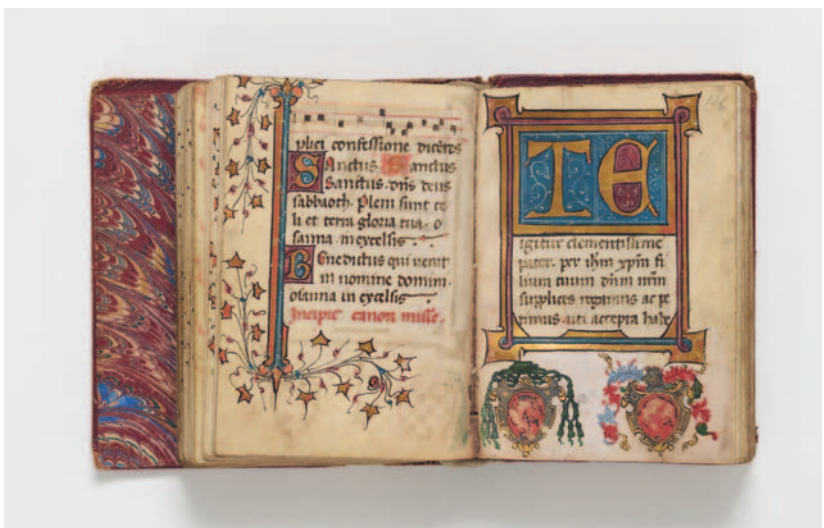 plici confessione dicētes
Sanctus Sanctus
Sanctus. dn̄s deus
sabbaoth. Pleni sunt ce
li et terra gloria tua. o
sanna in excelsis.
Benedictus qui uenit
in nomine domini.
osanna in excelsis
Incipit canon misse.
TE
igitur clementissime
pater. per ih̄m xp̄m fi
lium tuum dn̄m nr̄m
supplices rogamus ac pe
timus. uti accepta habe